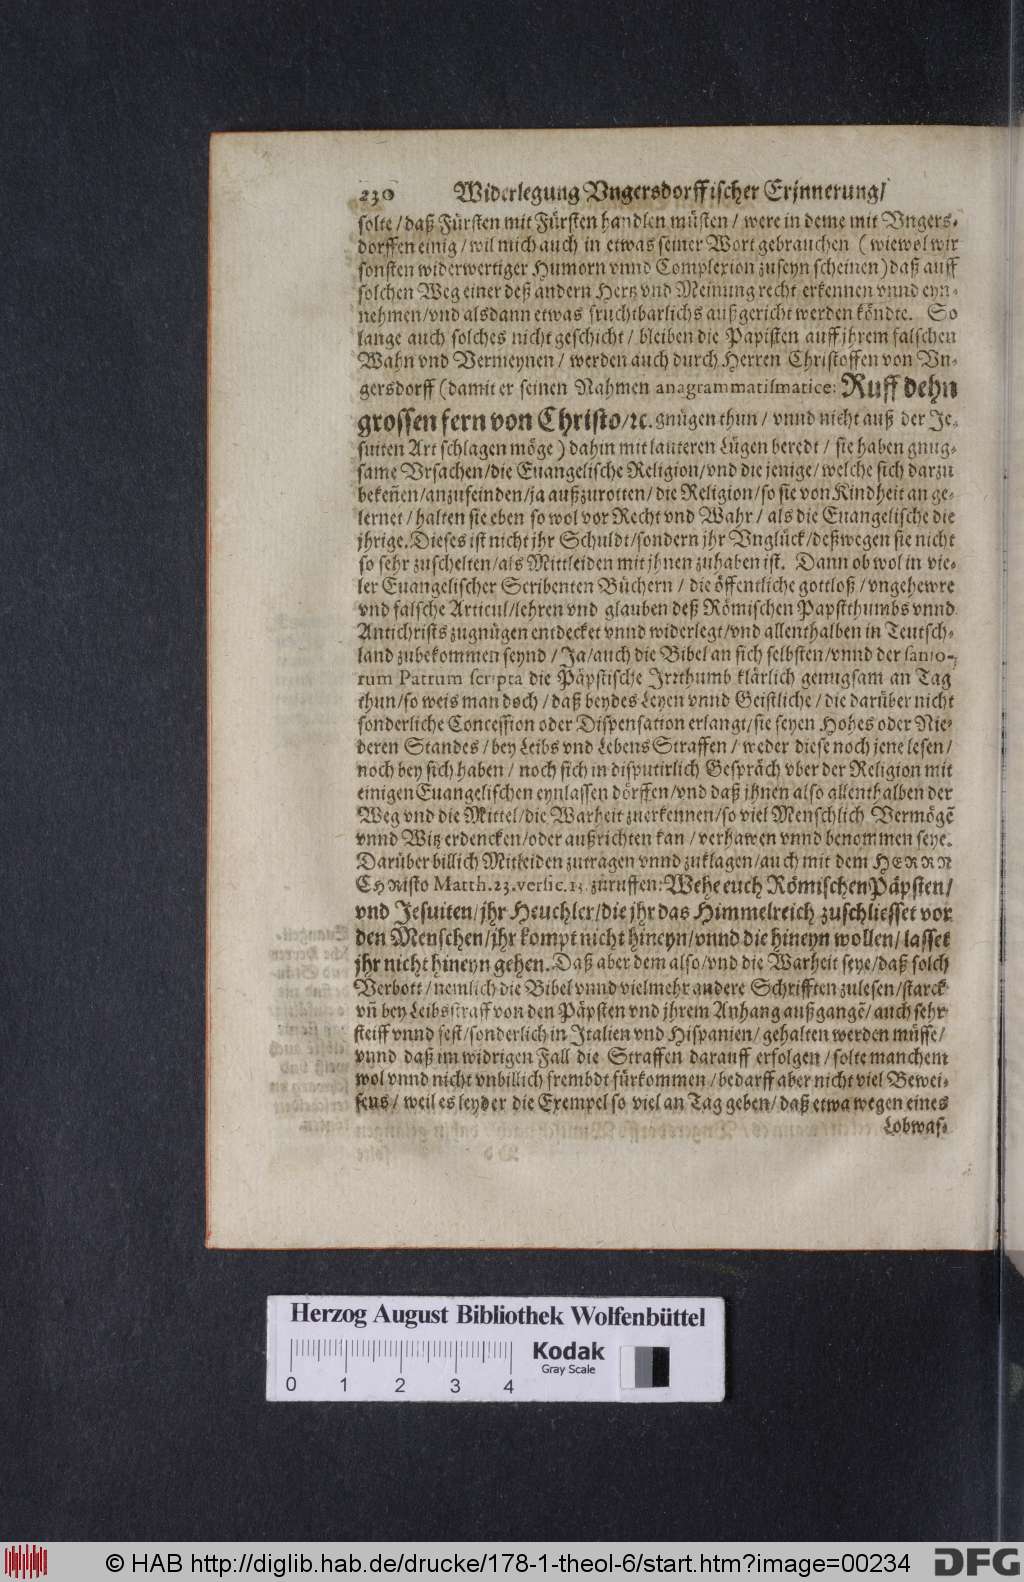 230 Widerlegung Vngersdorffischer Erjnnerung/
solte / daß Fürsten mit Fürsten handlen müsten / were in deme mit Vngers-
dorffen einig / wil mich auch in etwas seiner Wort gebrauchen ( wiewol wir
sonsten widerwertiger Humorn vnnd Complexion zuseyn scheinen) daß auff
solchen Weg einer deß andern Hertz vnd Meinung recht erkennen vnnd eyn-
nehmen/vnd alsdann etwas fruchtbarlichs außgericht werden köndte. So
lange auch solches nicht geschicht / bleiben die Papisten auff jhrem falschen
Wahn vnd Vermeynen / werden auch durch Herren Christoffen von Vn-
gersdorff (damit er seinen Nahmen anagrammatismatice: Ruff dehn
grossen fern von Christo/ꝛc. gnügen thun / vnnd nicht auß der Je-
suiten Art schlagen möge ) dahin mit lauteren Lügen beredt / sie haben gnug-
same Vrsachen/die Euangelische Religion/vnd die jenige/welche sich darzu
bekeñen/anzufeinden/ja außzurotten/die Religion/so sie von Kindheit an ge-
lernet / halten sie eben so wol vor Recht vnd Wahr / als die Euangelische die
jhrige. Dieses ist nicht jhr Schuldt/sondern jhr Vnglück/deßwegen sie nicht
so sehr zuschelten/als Mittleiden mit jhnen zuhaben ist. Dann ob wol in vie-
ler Euangelischer Scribenten Büchern / die öffentliche gottloß / vngehewre
vnd falsche Articul/lehren vnd glauben deß Römischen Papstthumbs vnnd
Antichrists zugnügen entdecket vnnd widerlegt/vnd allenthalben in Teutsch-
land zubekommen seynd / Ja/auch die Bibel an sich selbsten/vnnd der sancto-
rum Patrum scripta die Päpstische Jrrthumb klärlich genugsam an Tag
thun/so weis man doch / daß beydes Leyen vnnd Geistliche / die darüber nicht
sonderliche Concession oder Dispensation erlangt/sie seyen Hohes oder Nie-
deren Standes / bey Leibs vnd Lebens Straffen / weder diese noch jene lesen/
noch bey sich haben / noch sich in disputirlich Gespräch vber der Religion mit
einigen Euangelischen eynlassen dörffen/vnd daß jhnen also allenthalben der
Weg vnd die Mittel/die Warheit zuerkennen/so viel Menschlich Vermögẽ
vnnd Witz erdencken/oder außrichten kan / verhawen vnnd benommen seye.
Darüber billich Mitleiden zutragen vnnd zuklagen/auch mit dem HERRN
CHRisto Matth. 23. versic. 13. zuruffen: Wehe euch Römischen Päpsten/
vnd Jesuiten/jhr Heuchler/die jhr das Himmelreich zuschliesset vor
den Menschen/jhr kompt nicht hineyn/vnnd die hineyn wollen/ lasset
jhr nicht hineyn gehen. Daß aber dem also/vnd die Warheit seye/daß solch
Verbott/nemlich die Bibel vnnd vielmehr andere Schrifften zulesen/starck
vñ bey Leibsstraff von den Päpsten vnd jhrem Anhang außgangẽ/auch sehr
steiff vnnd fest/sonderlich in Italien vnd Hispanien/ gehalten werden müsse/
vnnd daß im widrigen Fall die Straffen darauff erfolgen / solte manchem
wol vnnd nicht vnbillich frembdt fürkommen /bedarff aber nicht viel Bewei-
sens / weil es leyder die Exempel so viel an Tag geben/daß etwa wegen eines
Lobwas-
Herzog August Bibliothek Wolfenbüttel
Kodak
Gray Scale
0 1 2 3 4
© HAB http://diglib.hab.de/drucke/178-1-theol-6/start.htm?image=00234
DFG